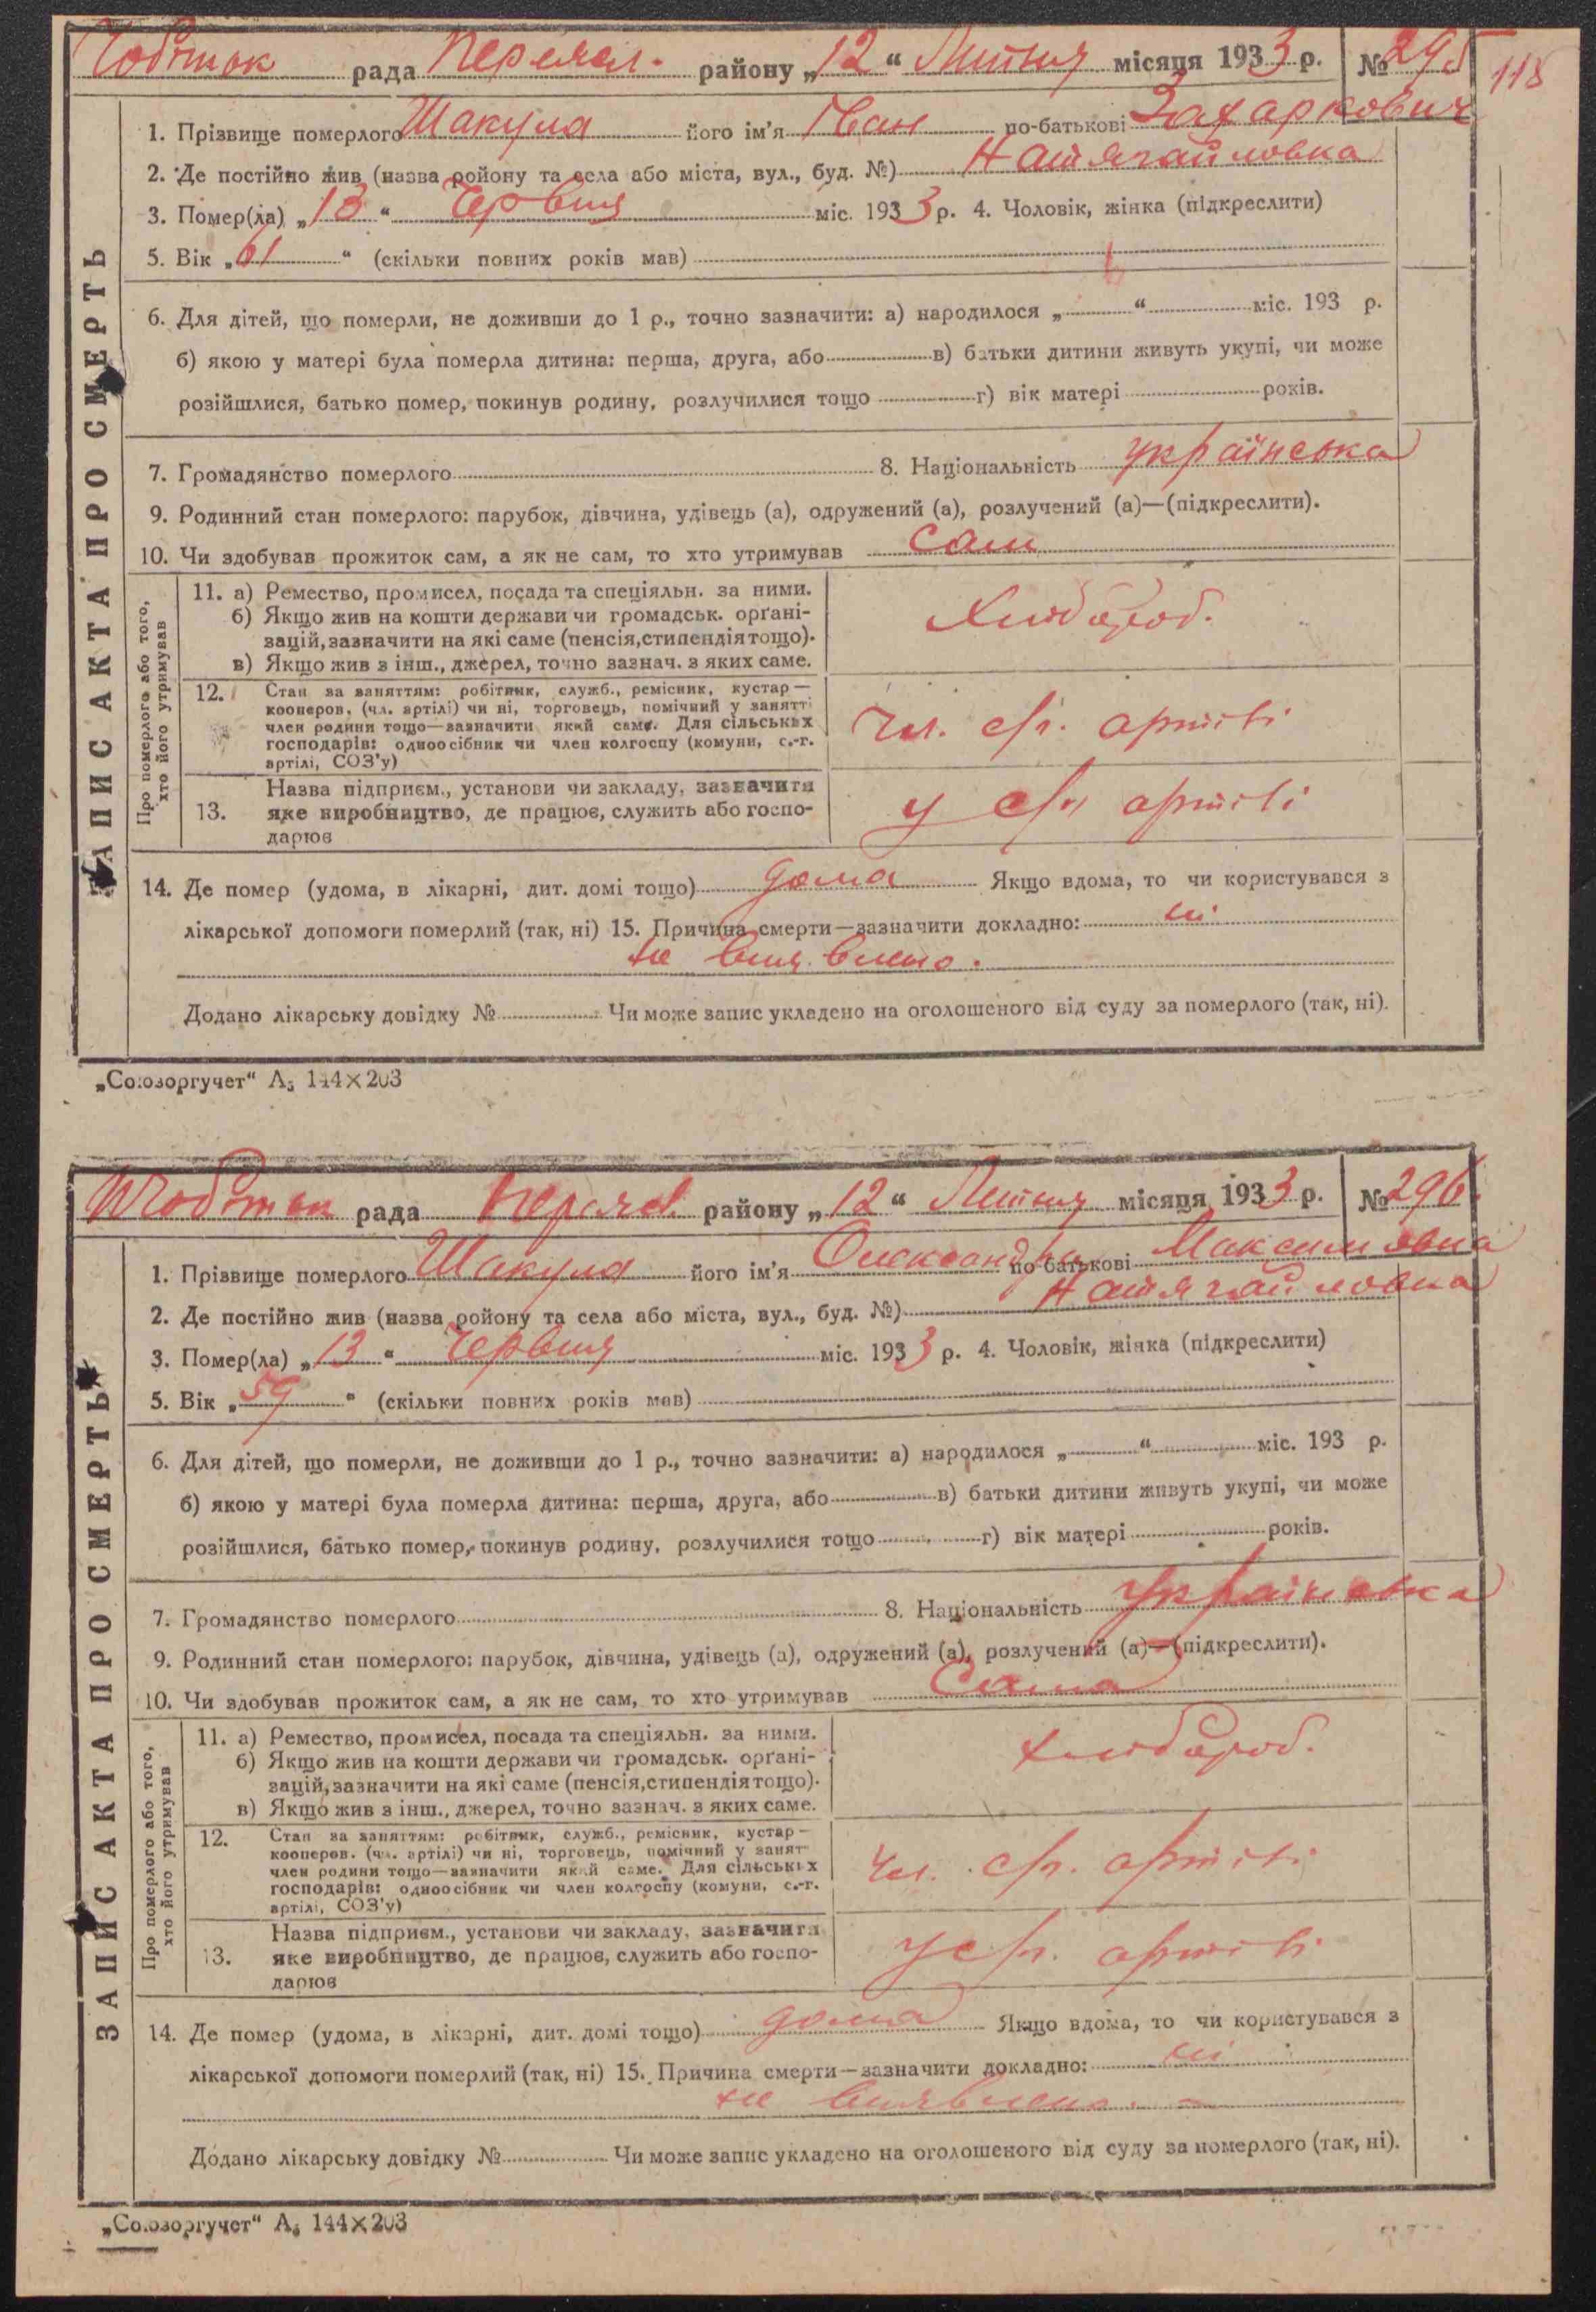 Чобіток рада Переясл. району „12“ Липня місяця 1933 р. № 295
118
1. Прізвище померлого Шакула його ім'я Іван по-батькові Захаркович
2. Де постійно жив (назва ройону та села або міста, вул., буд. №) Натягайловка
3. Помер(ла) „13“ Червня міс. 1933 р. 4. Чоловік, жінка (підкреслити)
5. Вік „61“ (скільки повних років мав)
6. Для дітей, що померли, не доживши до 1 р., точно зазначити: а) народилося „ “ міс. 193 р.
б) якою у матері була померла дитина: перша, друга, або в) батьки дитини живуть укупі, чи може
розійшлися, батько помер, покинув родину, розлучилися тощо г) вік матері років.
7. Громадянство померлого 8. Національність українська
9. Родинний стан померлого: парубок, дівчина, удівець (а), одружений (а), розлучений (а)—(підкреслити).
10. Чи здобував прожиток сам, а як не сам, то хто утримував сам
ЗАПИС АКТА ПРО СМЕРТЬ
Про померлого або того,
хто його утримував
11. а) Ремество, промисел, посада та спеціяльн. за ними.
б) Якщо жив на кошти держави чи громадськ. орґані-
зацій, зазначити на які саме (пенсія, стипендія тощо).
в) Якщо жив з інш., джерел, точно зазнач. з яких саме.
Хлібороб.
12. Стан за заняттям: робітник, служб., ремісник, кустар—
кооперов. (чл. артілі) чи ні, торговець, помічний у занятті
член родини тощо—зазначити який саме. Для сільських
господарів: одноосібник чи член колгоспу (комуни, с.-г.
артілі, СОЗ'у)
чл. с/г. артілі
Назва підприєм., установи чи закладу, зазначити
13. яке виробництво, де працює, служить або госпо-
дарює
у с/г артілі
14. Де помер (удома, в лікарні, дит. домі тощо) дома Якщо вдома, то чи користувався з
лікарської допомоги померлий (так, ні) 15. Причина смерти—зазначити докладно: ні
не виявлено.
Додано лікарську довідку № Чи може запис укладено на оголошеного від суду за померлого (так, ні).
„Союзоргучет“ А5 144×203
Чобіток рада Переясл. району „12“ Липня місяця 1933 р. № 296
1. Прізвище померлого Шакула його ім'я Олександра по-батькові Максимовна
2. Де постійно жив (назва ройону та села або міста, вул., буд. №) Натягайловка
3. Помер(ла) „13“ Червня міс. 1933 р. 4. Чоловік, жінка (підкреслити)
5. Вік „59“ (скільки повних років мав)
6. Для дітей, що померли, не доживши до 1 р., точно зазначити: а) народилося „ “ міс. 193 р.
б) якою у матері була померла дитина: перша, друга, або в) батьки дитини живуть укупі, чи може
розійшлися, батько помер, покинув родину, розлучилися тощо г) вік матері років.
7. Громадянство померлого 8. Національність українська
9. Родинний стан померлого: парубок, дівчина, удівець (а), одружений (а), розлучений (а)—(підкреслити).
10. Чи здобував прожиток сам, а як не сам, то хто утримував Сама
ЗАПИС АКТА ПРО СМЕРТЬ
Про померлого або того,
хто його утримував
11. а) Ремество, промисел, посада та спеціяльн. за ними.
б) Якщо жив на кошти держави чи громадськ. орґані-
зацій, зазначити на які саме (пенсія, стипендія тощо).
в) Якщо жив з інш., джерел, точно зазнач. з яких саме.
хлібороб.
12. Стан за заняттям: робітник, служб., ремісник, кустар—
кооперов. (чл. артілі) чи ні, торговець, помічний у занятт
член родини тощо—зазначити який саме. Для сільських
господарів: одноосібник чи член колгоспу (комуни, с.-г.
артілі, СОЗ'у)
чл. с/г. артілі
Назва підприєм., установи чи закладу, зазначити
13. яке виробництво, де працює, служить або госпо-
дарює
у с/г. артілі
14. Де помер (удома, в лікарні, дит. домі тощо) дома Якщо вдома, то чи користувався з
лікарської допомоги померлий (так, ні) 15. Причина смерти—зазначити докладно: ні
не виявлено.
Додано лікарську довідку № Чи може запис укладено на оголошеного від суду за померлого (так, ні).
„Союзоргучет“ А5 144×203